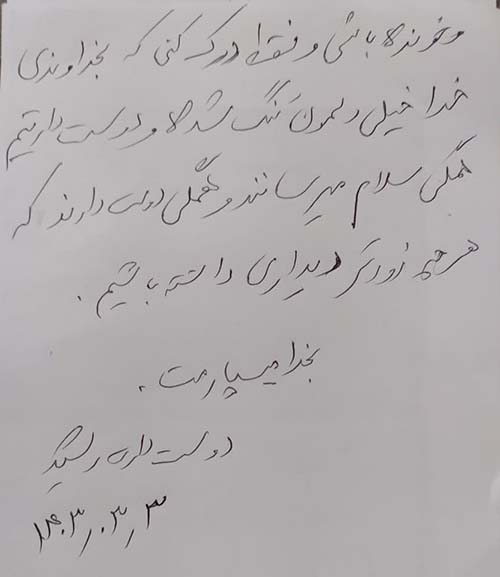 و خونده باشی و فقط درک کنی که بخداوندی
خدا خیلی دلمون تنگ شده و دوست داریم
همگی سلام میرسانند و همگی دوست دارند که
هر چه زودتر دیداری داشته باشیم.
بخدا میسپارمت.
دوست دارت رشید
۱۴۰۳٫۰۳٫۳